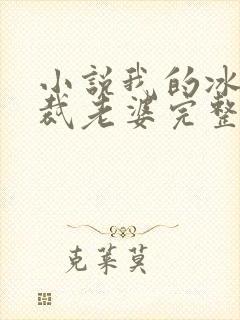 小説我的冰
裁老婆完整
克莱莫